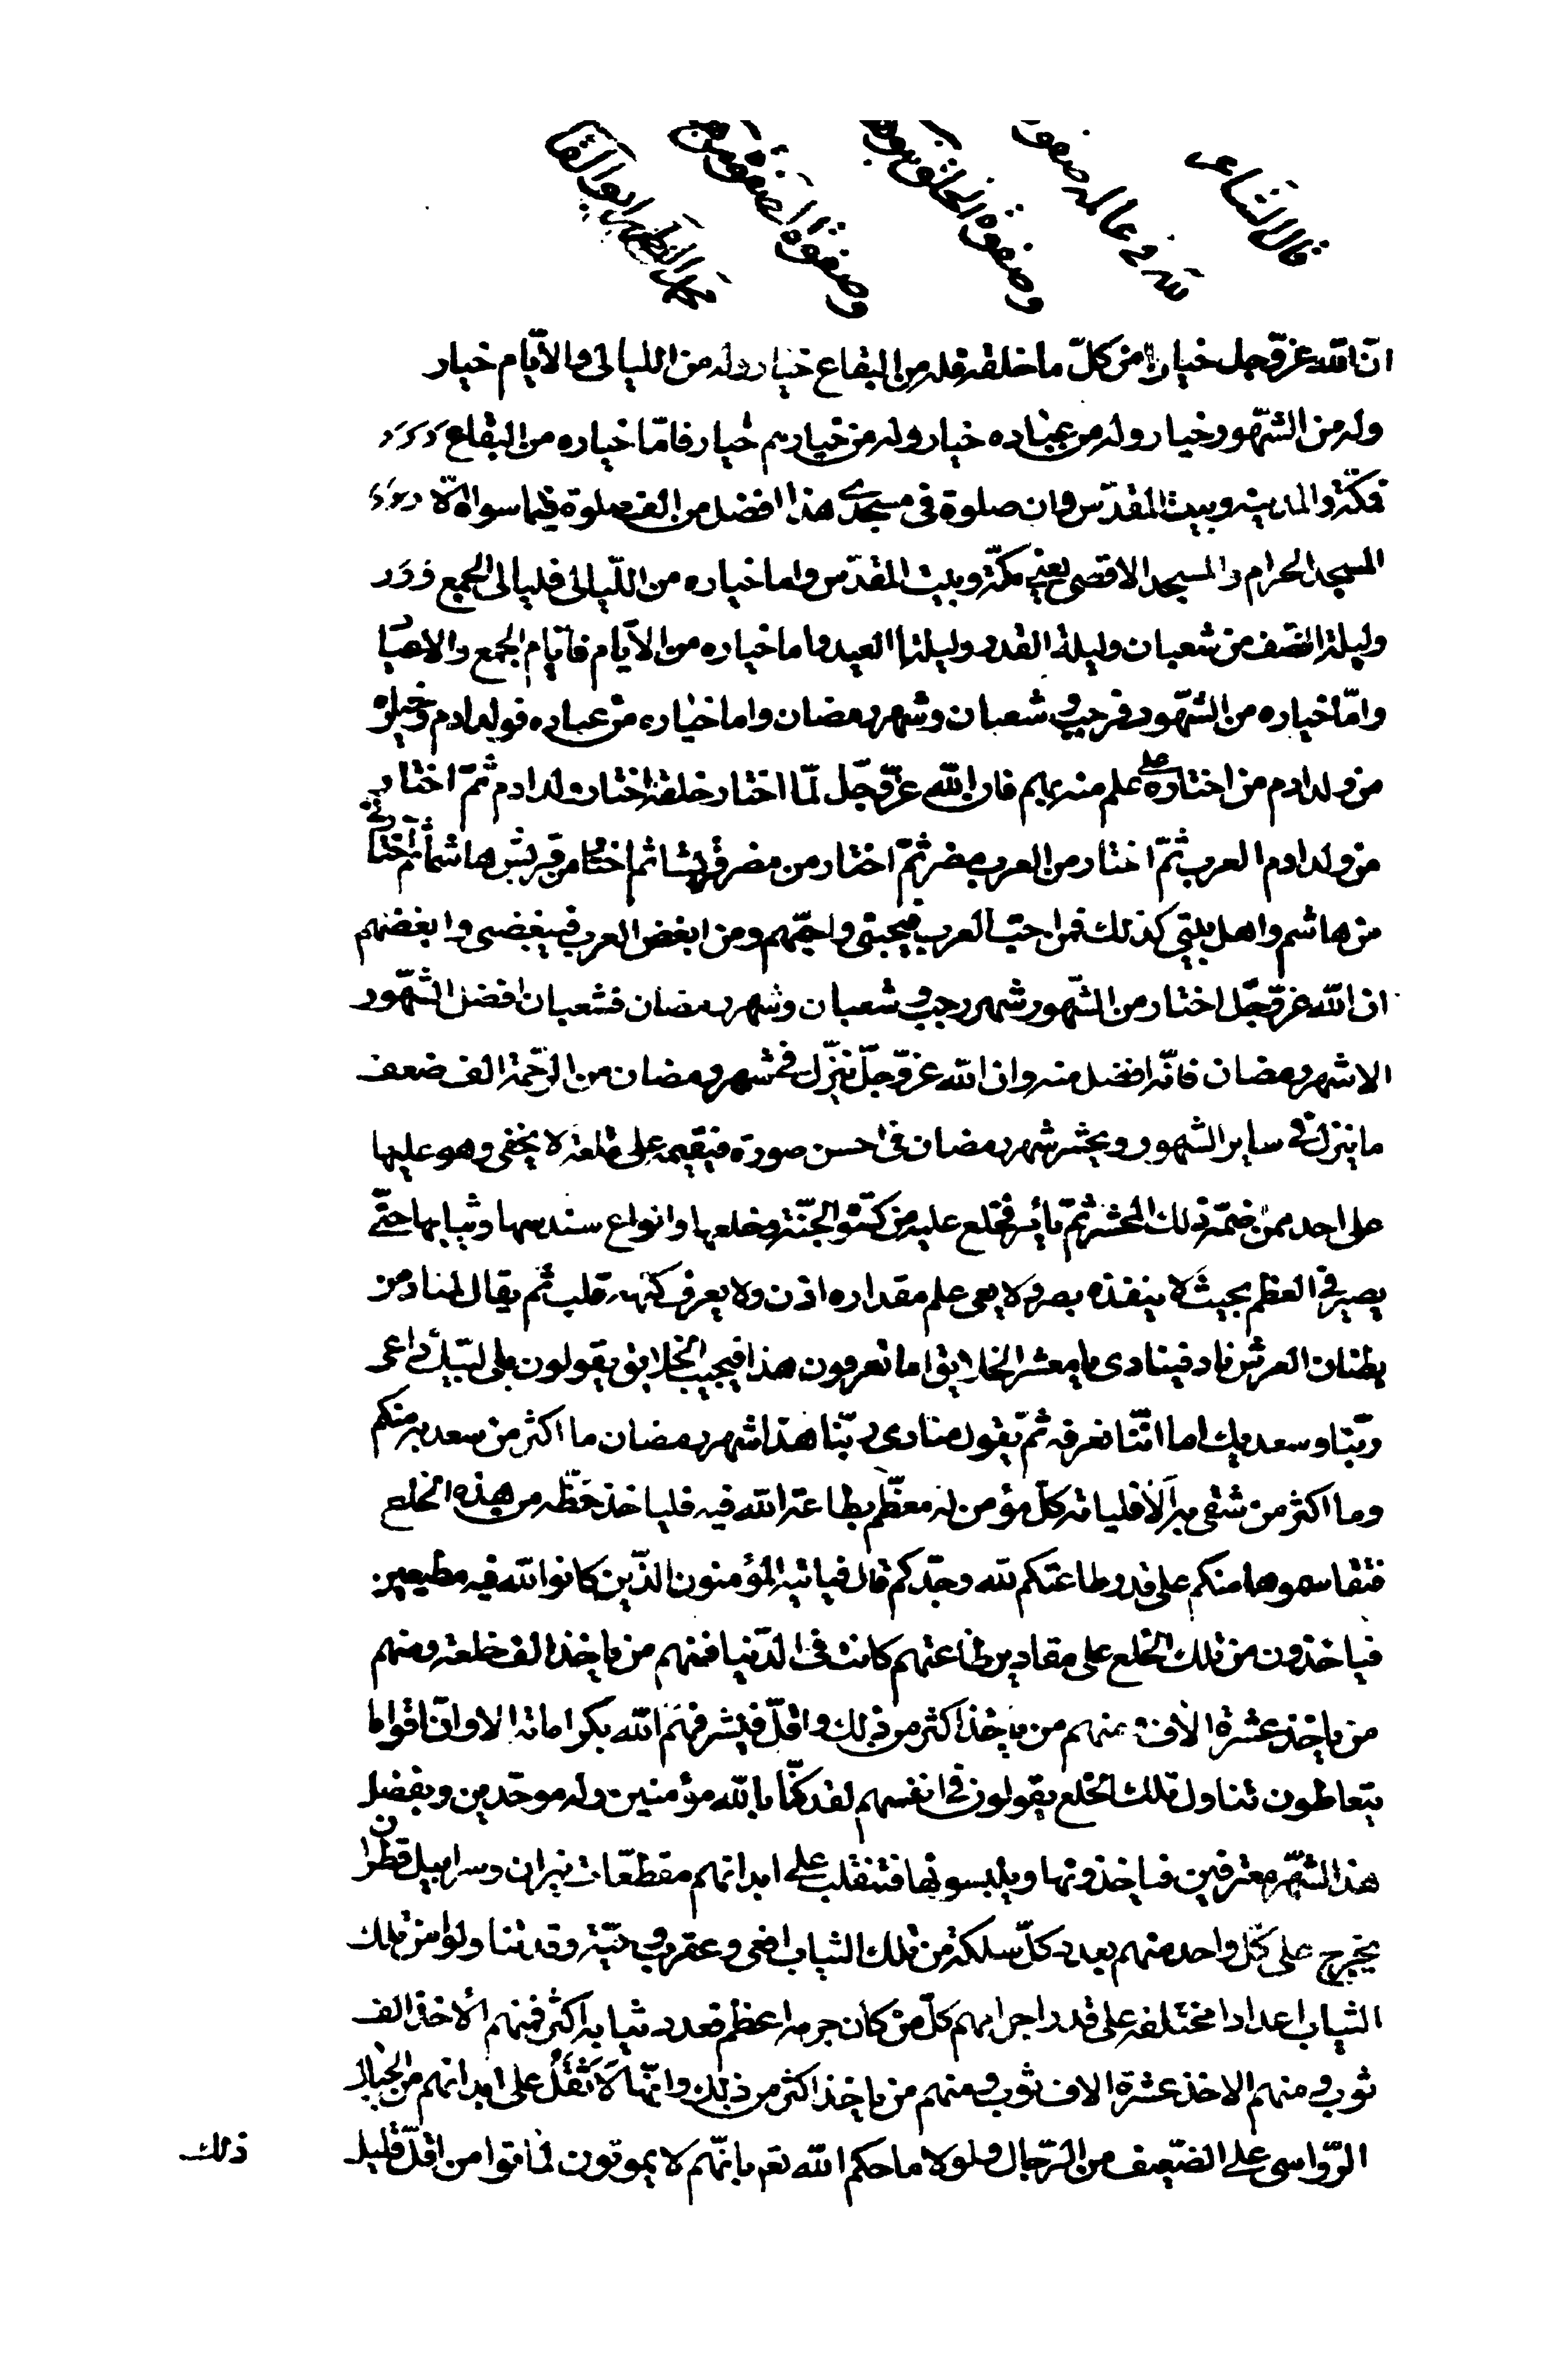 قال الشاعر
وصفوة الخلق
ان الله عز وجل خيارا من كل ما خلقه فله من البقاع خيار وله من الليالى والايام خيار
وله من الشهور خيار وله من عباده خيار وله من خيارهم خيار فاما خياره من البقاع
فمكة والمدينه وبيت المقدس وان صلوة فى مسجدى هذا افضل من الف صلوة فيما سواه الا
المسجد الحرام والمسجد الاقصى يعنى مكة وبيت المقدس واما خياره من الليالى فليالى الجمع
وليلة النصف من شعبان وليلة القدر وليلتا العيد واما خياره من الايام فايام الجمع والاعياد
واما خياره من الشهور فرجب وشعبان وشهر رمضان واما خياره من عباده فولد ادم وخياره
من ولد ادم من اختاره على علم منه بهم فان الله عز وجل لما اختار خلقه اختار ولد ادم ثم اختار
من ولد ادم العرب ثم اختار من العرب مضر ثم اختار من مضر قريشا ثم اختار من قريش هاشما ثم اختارنى
من هاشم واهل بيتى كذلك فمن احب العرب فيحبنى واحبهم ومن ابغض العرب فيبغضنى وابغضهم
ان الله عز وجل اختار من الشهور شهر رجب وشعبان وشهر رمضان فشعبان افضل الشهور
الا شهر رمضان فانه افضل منه وان الله عز وجل ينزل فى شهر رمضان من الرحمة الف ضعف
ما ينزل فى ساير الشهور ويحشر شهر رمضان فى احسن صورة فيقيمه على تلعة لا يخفى وهو عليها
على احد ممن ضمه ذلك المحشر ثم يأمر فيخلع عليه من كسوة الجنة وخلعها وانواع سندسها وثيابها حتى
يصير فى العظم بحيث لا ينفذه بصر ولا يعى علم مقداره اذن ولا يعرف كنهه قلب ثم يقال لمناد من
بطنان العرش ناد فينادى يا معشر الخلايق اما تعرفون هذا فيجيب الخلايق يقولون بلى لبيك داعى
ربنا وسعديك اما اننا نعرفه ثم يقول منادى ربنا هذا شهر رمضان ما اكثر من سعد به منكم
وما اكثر من شقى به الا فلياته كل مؤمن له معظم بطاعة الله فيه فلياخذ حظه من هذه الخلع
فتقاسموها منكم على قدر طاعتكم لله وجدكم قال فياتيه المؤمنون الذين كانوا لله فيه مطيعين
فياخذون من تلك الخلع على مقادير طاعتهم كانت فى الدنيا فمنهم من ياخذ الف خلعة ومنهم
من ياخذ عشرة الاف ومنهم من ياخذ اكثر من ذلك واقل فيشرفهم الله بكراماته الا وان اقواما
يتعاطون تناول تلك الخلع يقولون فى انفسهم لقد كنا بالله مؤمنين وله موحدين وبفضل
هذا الشهر معترفين فياخذونها ويلبسونها فتنقلب على ابدانهم مقطعات نيران وسرابيل قطران
يخرج على كل واحد منهم بعدد كل سلكة من تلك الثياب افعى وعقرب وحية وقد تناولوا من تلك
الثياب اعدادا مختلفه على قدر اجرامهم كل من كان جرمه اعظم فعدد ثيابه اكثر فمنهم الاخذ الف
ثوب ومنهم الاخذ عشرة الاف ثوب ومنهم من ياخذ اكثر من ذلك وانها لاثقل على ابدانهم من الجبال
الرواسى على الضعيف من الرجال ولولا ما حكم الله تعم بانهم لا يموتون لماتوا من اقل قليل
ذلك